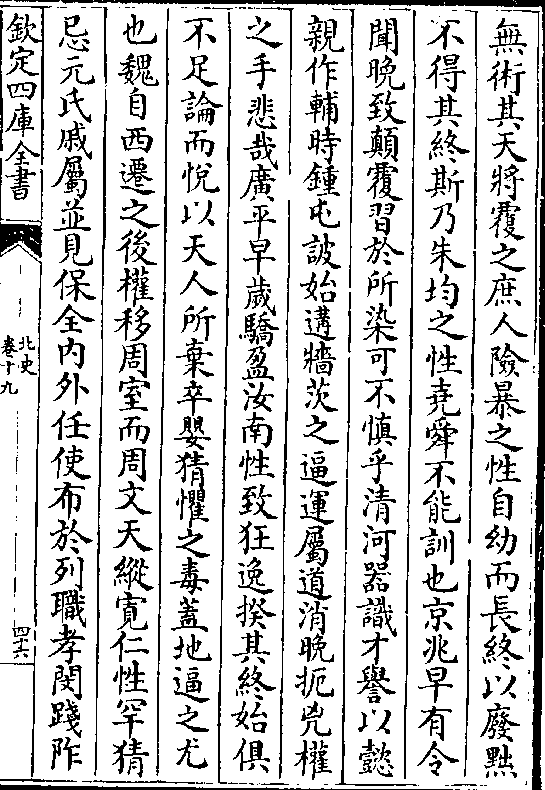 無術其天將覆之庶人險暴之性自幼而長終以廢黜
不得其終斯乃朱均之性堯舜不能訓也京兆早有令
聞晩致顛覆習於所染可不慎乎清河器識才譽以懿
親作輔時鍾屯詖始遘牆茨之逼運屬道消晩扼兇權
之手悲哉廣平早歲驕盈汝南性致狂逸揆其終始俱
不足論而悅以天人所棄卒嬰猜懼之毒蓋地逼之尤
也魏自西遷之後權移周室而周文天縱寛仁性罕猜
忌元氏戚屬並見保全內外任使布於列職孝閔踐阼
欽定四庫全書
北史
卷十九
四十六